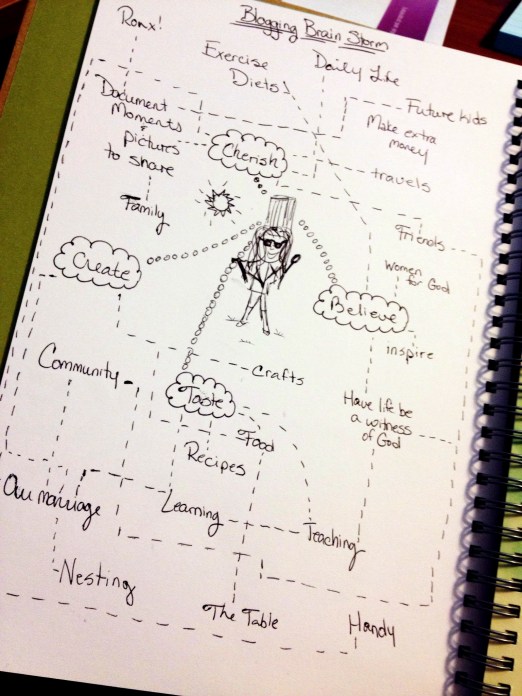 Blogging Brain Storm
Ronx!
Exercise
Diets!
Daily Life
Document
Moments
&
pictures
to share
Future kids
Make extra
money
Cherish
travels
Family
Friends
Women
for God
Create
Believe
inspire
Community
Crafts
Taste
Have life be
a witness
of God
Food
Recipes
Our marriage
Learning
Teaching
Nesting
The Table
Handy